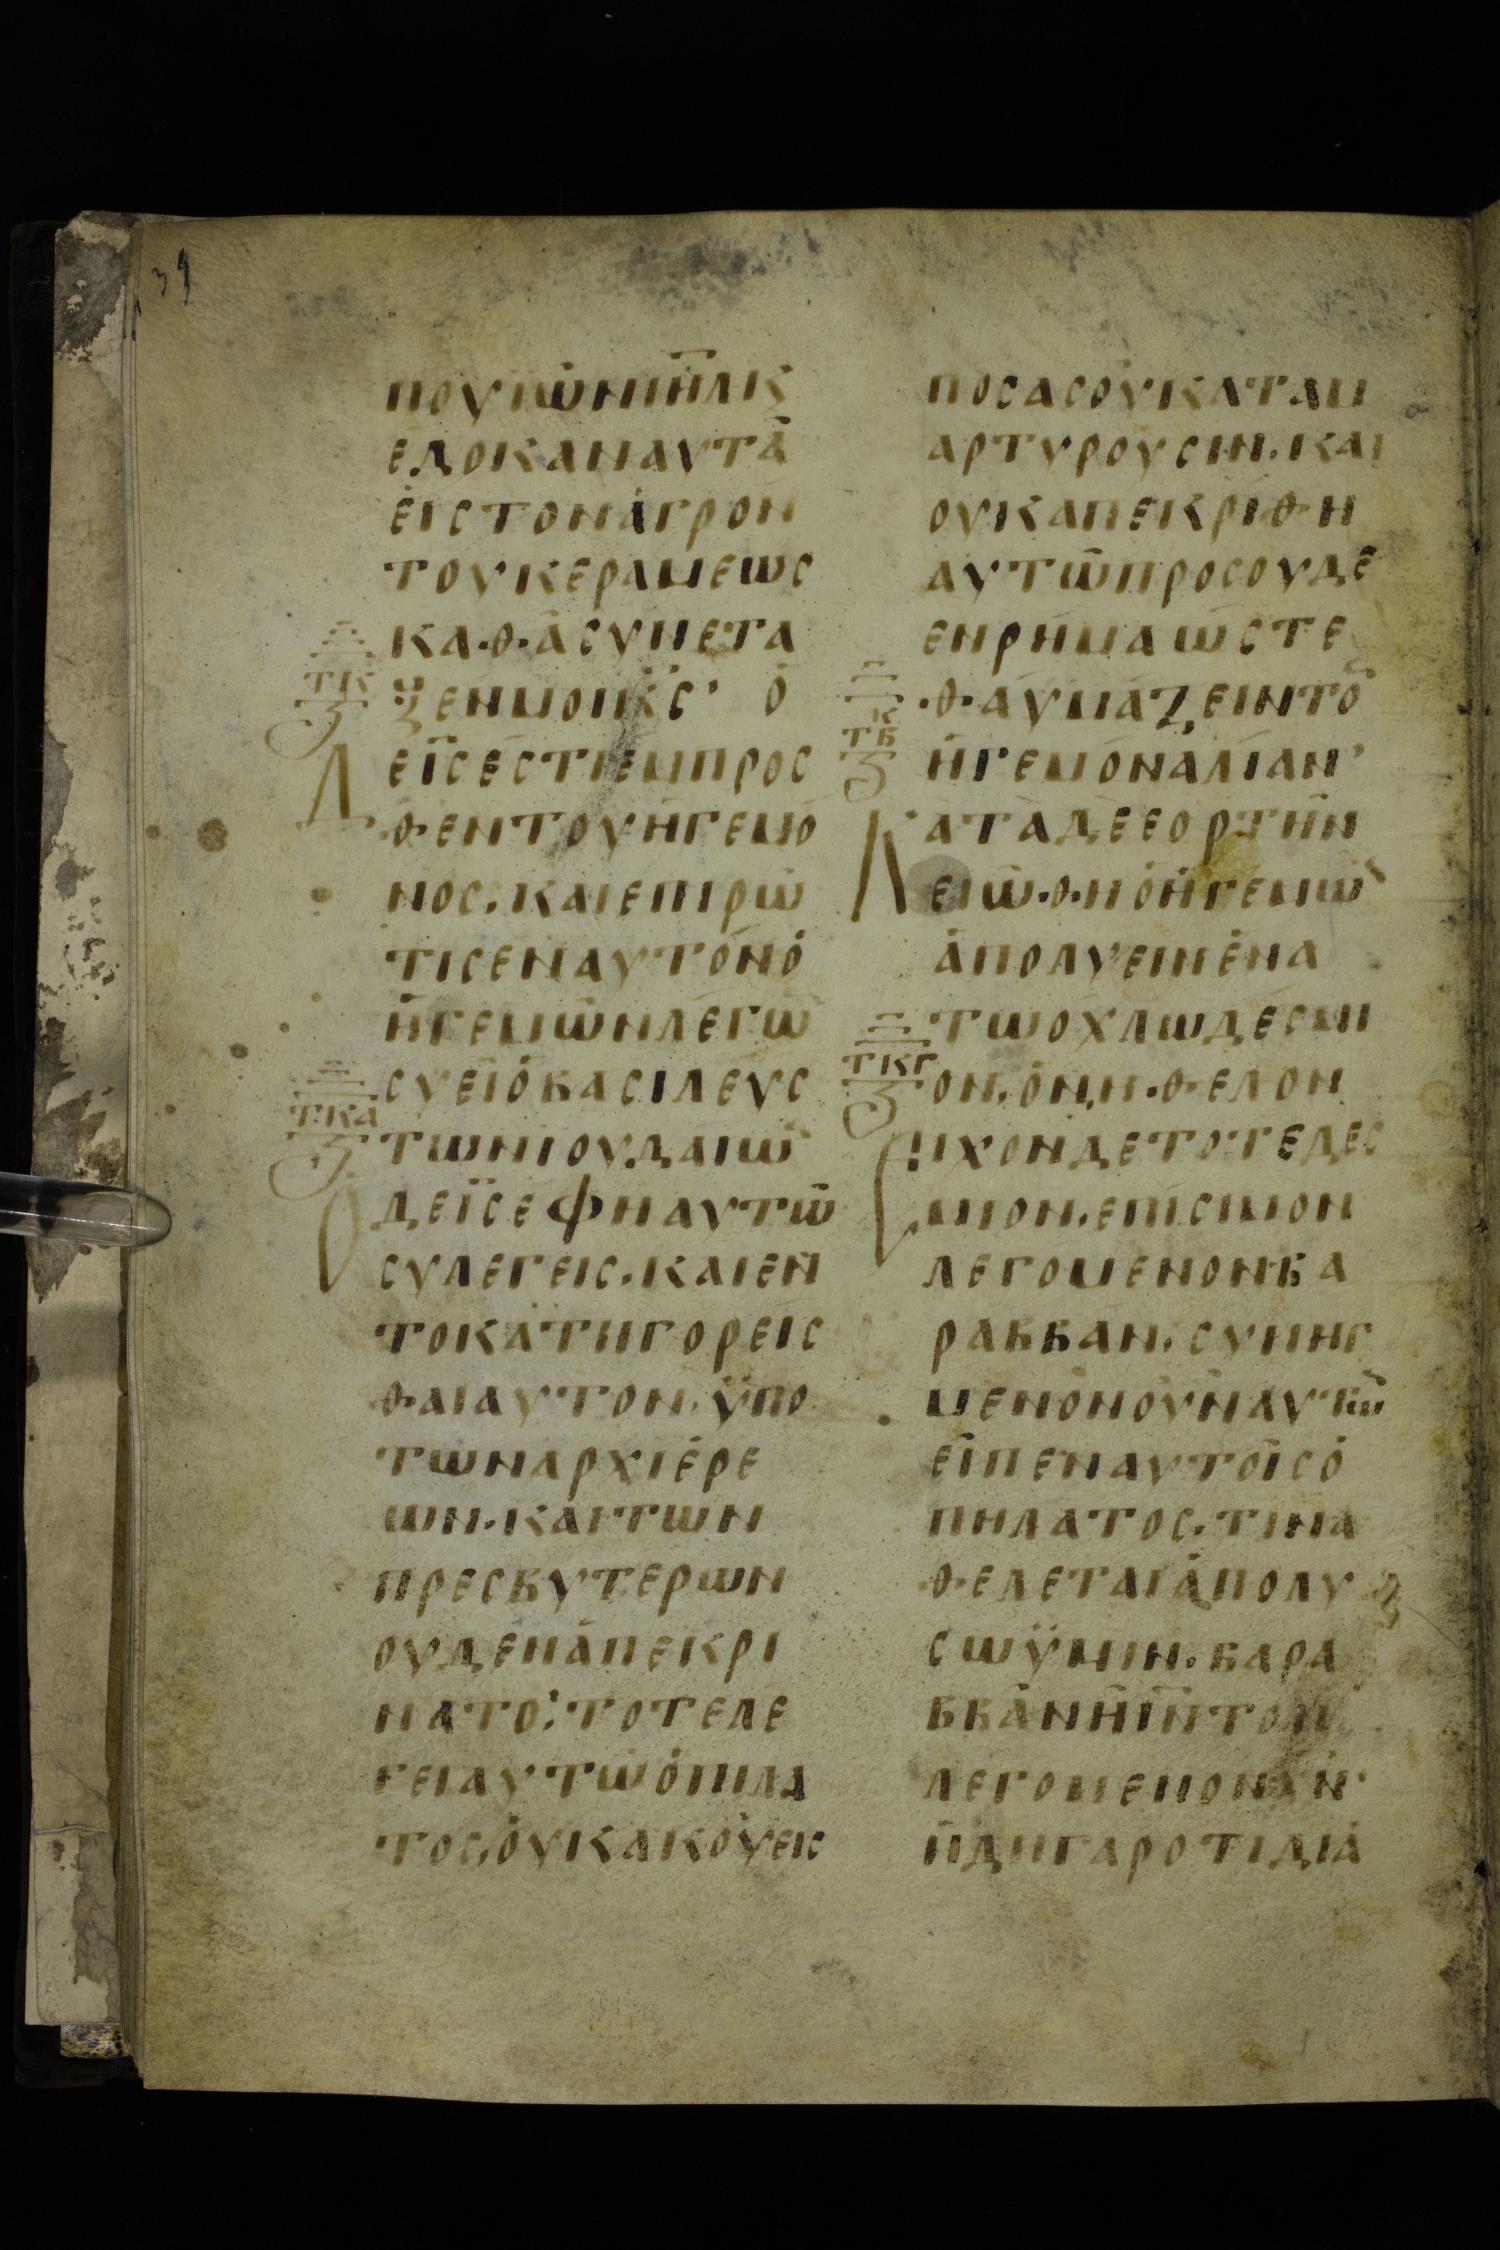 39
ΠΟΥΙΩΝΙΗΛΚ
ΕΔΟΚΑΝΑΥΤΑ
ΕΙΣΤΟΝΑΓΡΟΝ
ΤΟΥΚΕΡΑΜΕΩΣ
ΚΑΘΑΣΥΝΕΤΑ
ΤΚ
ΞΕΝΜΟΙΚΣ Ο
ΔΕΙΣΕΣΤΙΕΜΠΡΟΣ
ΘΕΝΤΟΥΗΓΕΜΟ
ΝΟΣ.ΚΑΙΕΠΙΡΩ
ΤΙΣΕΝΑΥΤΟΝΟ
ΗΓΕΜΩΝΛΕΓΩ
ΣΥΕΙΟΒΑΣΙΛΕΥΣ
ΤΚΑ
ΤΩΝΙΟΥΔΑΙΩ
ΟΔΕΙΣΕΦΗΑΥΤΩ
ΣΥΛΕΓΕΙΣ.ΚΑΙΕΝ
ΤΟΚΑΤΗΓΟΡΕΙΣ
ΘΑΙΑΥΤΟΝ.ΫΠΟ
ΤΩΝΑΡΧΙΕΡΕ
ΩΝ.ΚΑΙΤΩΝ
ΠΡΕΣΒΥΤΕΡΩΝ
ΟΥΔΕΝΑΠΕΚΡΙ
ΝΑΤΟ:ΤΟΤΕΛΕ
ΓΕΙΑΥΤΩΟΠΙΛΑ
ΤΟΣ.ΟΥΚΑΚΟΥΕΙΣ
ΠΟΣΑΣΟΥΚΑΤΑΜ
ΑΡΤΥΡΟΥΣΙΝ.ΚΑΙ
ΟΥΚΑΠΕΚΡΙΘΗ
ΑΥΤΩΠΡΟΣΟΥΔΕ
ΕΝΡΗΜΑΩΣΤΕ
ΘΑΥΜΑΖΕΙΝΤΟ
ΤΚΒ
ΗΓΕΜΟΝΑΛΙΑΝ
ΚΑΤΑΔΕΕΟΡΤΗΝ
ΕΙΩΘΗΟΗΓΕΜΩ
ΑΠΟΛΥΕΙΝΕΝΑ
ΤΩΟΧΛΩΔΕΣΜΙ
ΤΚΓ
ΟΝ.ΟΝ,Η.ΘΕΛΟΝ
ΕΙΧΟΝΔΕΤΟΤΕΔΕΣ
ΜΙΟΝ.ΕΠΙΣΙΜΟΝ
ΛΕΓΟΜΕΝΟΝΒΑ
ΡΑΒΒΑΝ.ΣΥΝΗΓ
ΜΕΝΟΝΟΥΝΑΥΤΩ
ΕΙΠΕΝΑΥΤΟΙΣΟ
ΠΗΛΑΤΟΣ.ΤΙΝΑ
ΘΕΛΕΤΑΙΑΠΟΛΥ
ΣΩΫΜΙΝ.ΒΑΡΑ
ΒΒΑΝΗΙΝΤΟΝ
ΛΕΓΟΜΕΝΟΝΧΝ
ΗΔΗΓΑΡΟΤΙΔΙΑ